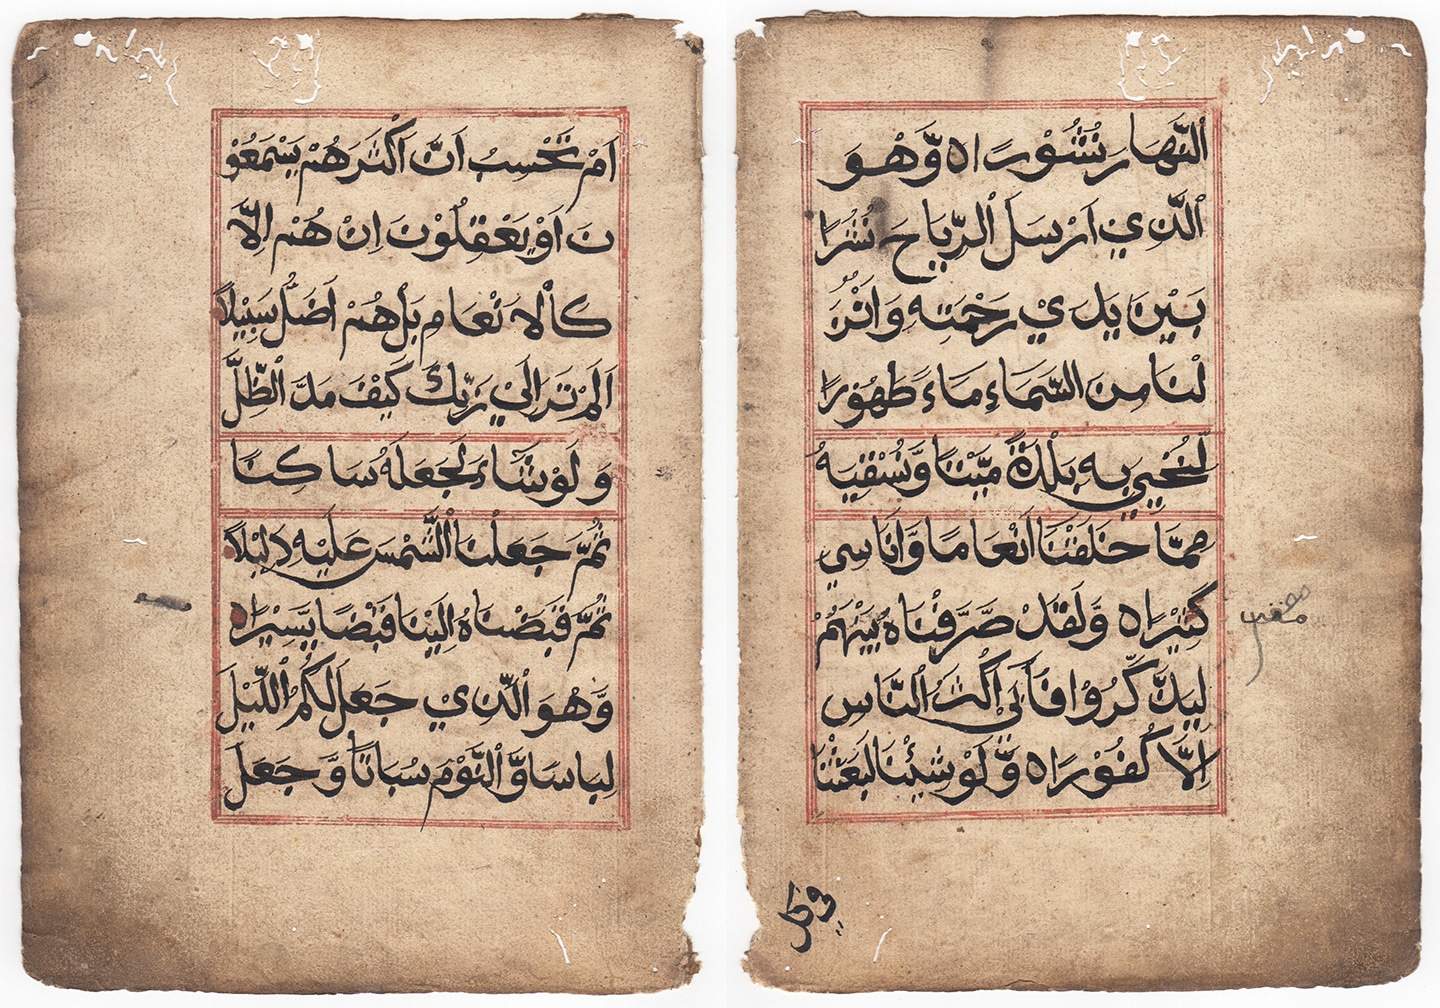 اَمْ تَحْسِبُ اَنَّ اَكْثَرَهُمْ يَسْمَعُوْ
نَ اَوْ يَعْقِلُوْنَ اِنْ هُمْ اِلَّا
كَاْلاَنْعَامِ بَلْ هُمْ اَضَلُّ سَبِيْلًا
اَلَمْ تَرَ اِلَيْ رَبِّكَ كَيْفَ مَدَّ الظِّلَّ
وَلَوْ شَاءَ لَجَعَلَهُ سَاكِنًا
ثُمَّ جَعَلْنَا الشَّمْسَ عَلَيْهِ دَلِيْلًا
ثُمَّ قَبَضْنَاهُ اِلَيْنَا قَبْضًا يَّسِيْرًا ه
وَهُوَ الَّذِيْ جَعَلَ لَكُمُ الَّليْلَ
لِبَاسًا وَّ النَّوْمَ سُبَاتًا وَّ جَعَلَ
النَّهَارَ نُشُوْرًا ه وَّهُوَ
الَّذِيْ اَرْسَلَ الرِّيَاحَ نُشُرًا
بَيْنَ يَدَيْ رَحْمَتِه وَاَنْزَ
لْنَا مِنَ السَّمَاءِ مَاءً طَهُوْرًا
لِنُحْيِيَ بِه بَلْدَةً مَيْتًا وَّنُسْقِيَهُ
مِمَّا خَلَقْنَا اَنْعَامًا وَّاَنَاسِيَ
كَثِيْرًا ه وَلَقَدْ صَرَّفْنَاهُ بَيْنَهُمْ
لِيَذَّكَّرُوْا فَاَبَي اَكْثَرُ النَّاسِ
اِلَّا كُفُوْرًا ه وَّلَوْ شِئْنَا لَبَعَثْنَا
في كل